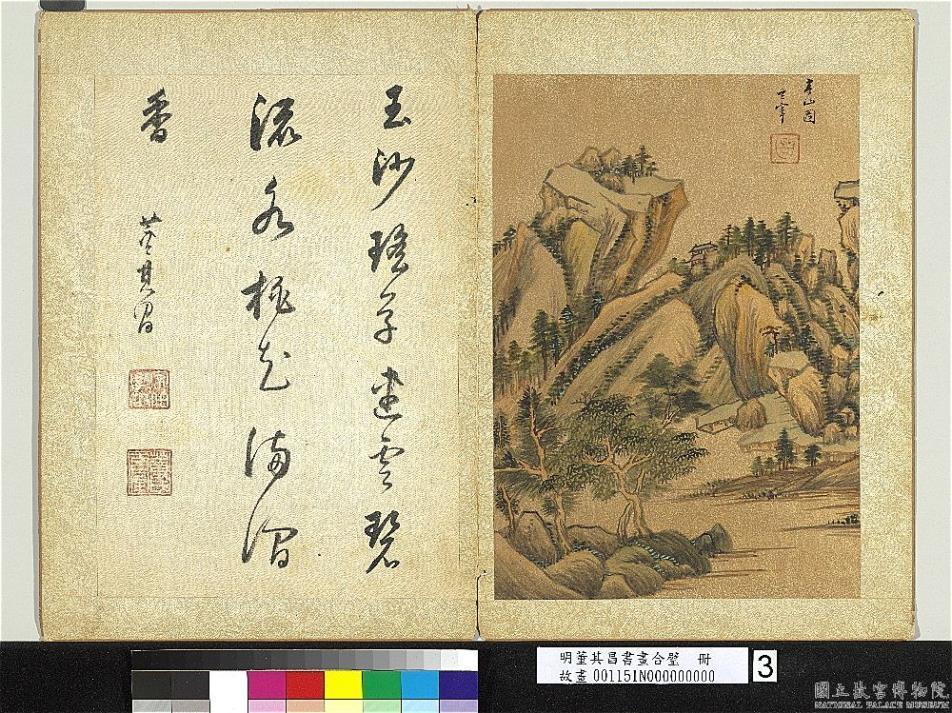 玉沙瑤草連雲碧
流水桃花滿澗
香
董其昌
山圖
玄宰
明董其昌書畫合璧 冊
故畫 001151N000000000
3
國立故宮博物院
NATIONAL PALACE MUSEUM